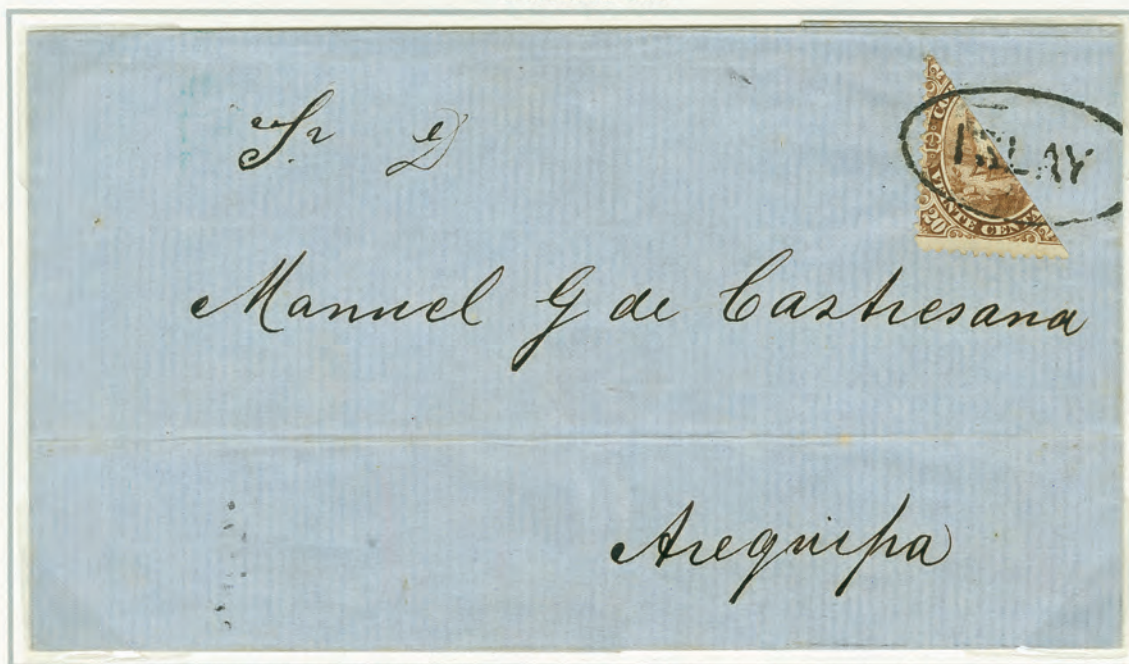 Sr D
ISLAY
20
VEINTE CENT
Manuel G de Castresana
Arequipa